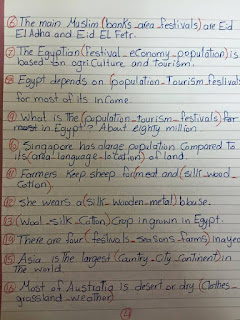 ⑥ The main Muslim (banks - area - festivals) are Eid
El Adha and Eid El Fetr.
⑦ The Egyptian (festival - economy - population) is
based on agriculture and tourism.
⑧ Egypt depends on (population - Tourism - festivals
for most of its income.
⑨ What is the (population - tourism - festivals)
in Egypt? About eighty million.
⑩ Singapore has a large population Compared to
its (area - language - location) of land.
⑪ Farmers Keep sheep for (meat and (silk - wool
- Cotton).
⑫ She wears a (silk - wooden - metal) blouse.
⑬ (Wool - silk - Cotton) Crop is grown in Egypt.
⑭ There are four (festivals - seasons - farms) in a year
⑮ Asia is the largest (Country - City - Continent) in
the world.
⑯ Most of Australia is desert or dry (Clothes -
grassland - weather)